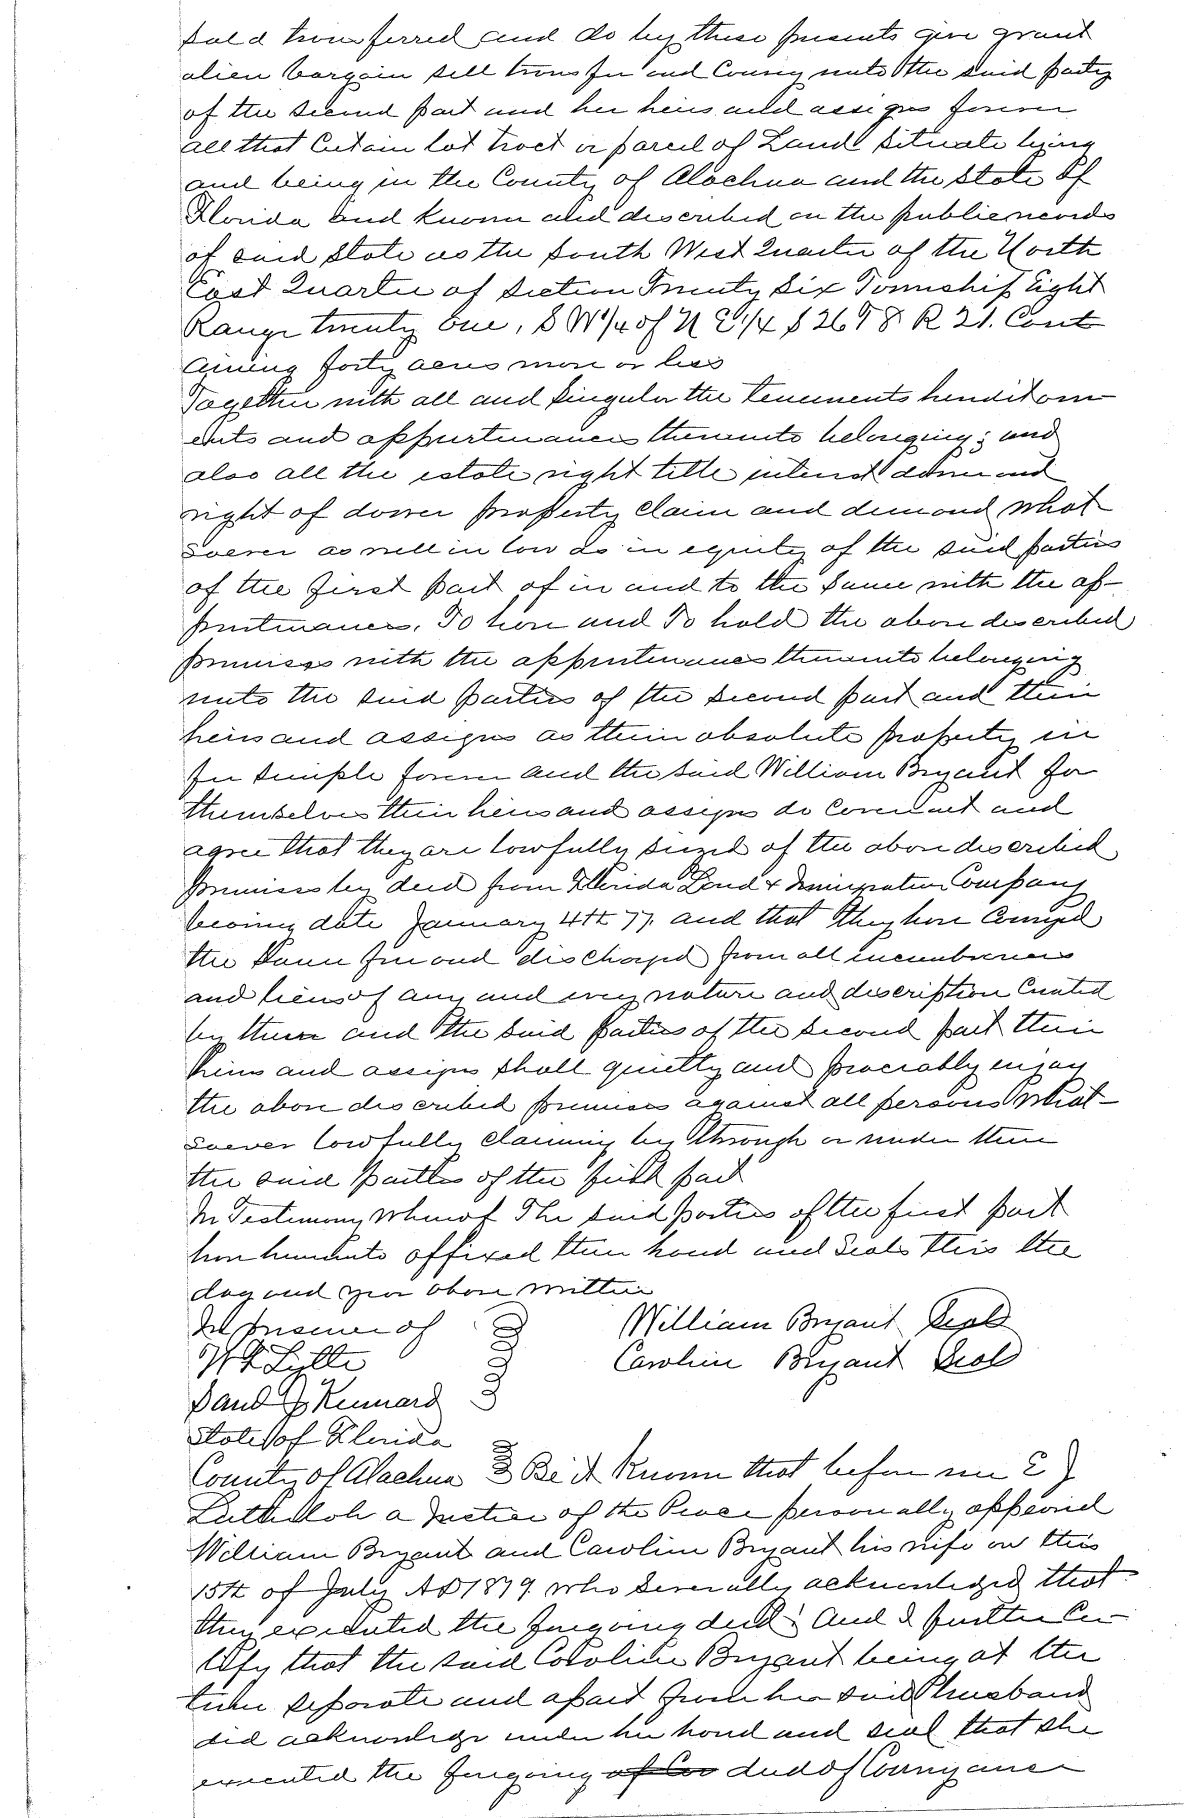 sold transferred and do by these presents give grant
alien bargain sell transfer and Convey unto the said party
of the second part and her heirs and assigns forever
all that Certain lot tract or parcel of Land situate lying
and being in the County of Alachua and the State of
Florida and known and described on the public records
of said State as the South West Quarter of the North
East Quarter of Section Twenty Six Township Eight
Range twenty One, S W 1/4 of N E 1/4 S 26 T 8 R 21. Cont
aining forty acres more or less
Together with all and singular the tenements heriditam-
ents and appurtenances thereunto belonging; and
also all the estate right title interest dower and
right of dower property Claim and demand what
soever as well in law as in equity of the said parties
of the first part of in and to the same with the ap-
purtenances, To have and To hold the above described
premises with the appurtenances thereunto belonging
unto the said parties of the second part and their
heirs and assigns as their absolute property in
fee simple forever and the said William Bryant for
themselves their heirs and assigns do Covenant and
agree that they are lawfully seized of the above described
premises by deed from Florida Land & Immigration Company
bearing date January 4th 77. and that they have Conveyed
the same free and discharged from all incumbrances
and liens of any and every nature and discription Created
by them and the said parties of the second part their
heirs and assigns shall quietly and peaceably enjoy
the above described premises against all persons what-
soever lawfully claiming by through or under them
the said parties of the first part
In Testimony Whereof The said parties of the first part
have hereunto affixed their hand and Seals this the
day and year above written
In presence of William Bryant Seal
W Lytle Caroline Bryant Seal
Kennard
State of Florida
County of Alachua Be it Known that before me E J
a Justice of the Peace personally appeared
William Bryant and Caroline Bryant his wife on this
15th of July AD 1879. who severally acknowledged that
they executed the foregoing deed; And I further Cer-
tify that the said Caroline Bryant being at the
time separate and apart from her said husband
did acknowledge under her hand and seal that she
executed the foregoing deed of Conveyance